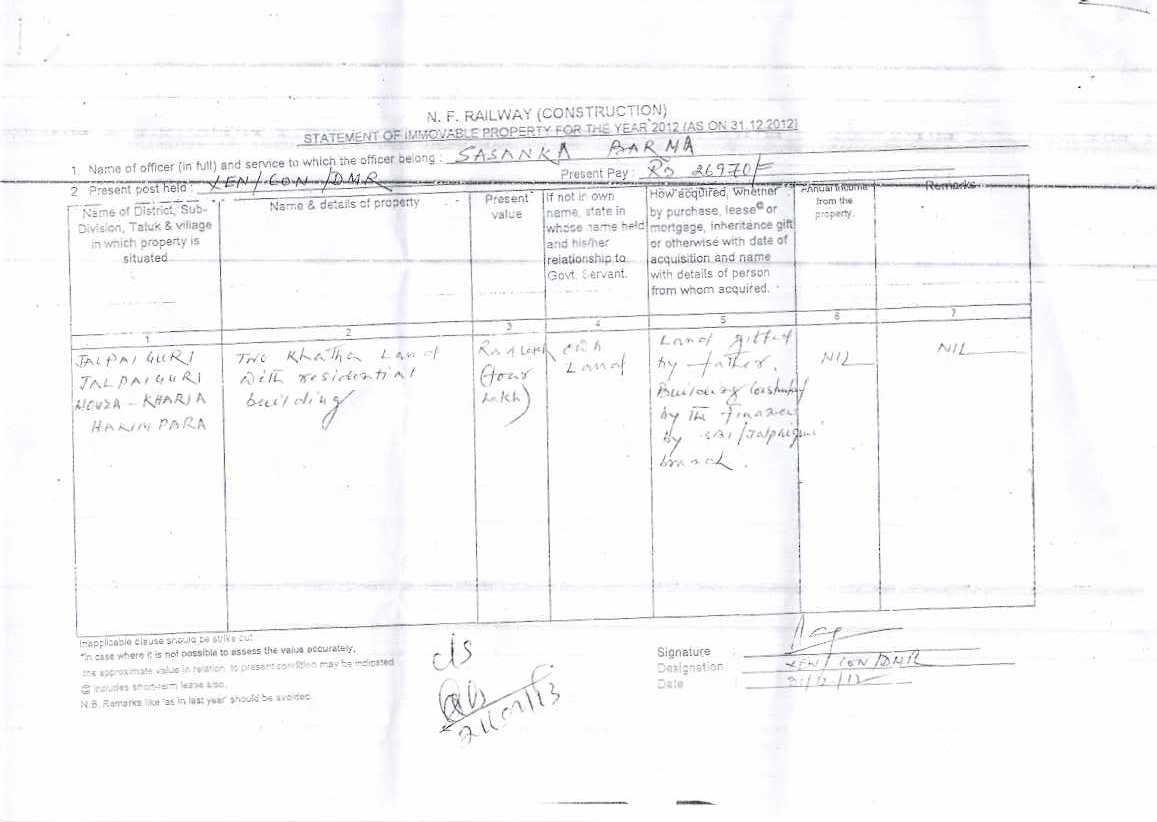 N. F. RAILWAY (CONSTRUCTION)
STATEMENT OF IMMOVABLE PROPERTY FOR THE YEAR 2012 (AS ON 31.12.2012)
1. Name of officer (in full) and service to which the officer belong : SASANKA BARMA
2 Present post held : XEN/CON/DMR Present Pay : Rs 26970/=
Name of District, Sub-
Division, Taluk & village
in which property is
situated
Name & details of property
Present*
value
If not in own
name, state in
whose name held
and his/her
relationship to
Govt. Servant.
How acquired, whether
by purchase, lease@ or
mortgage, inheritance gift
or otherwise with date of
acquisition and name
with details of person
from whom acquired.
Annual income
from the
property.
Remarks
1 2 3 4 5 6 7
JALPAIGURI
JALPAIGURI
MOUZA - KHARIA
HAKIMPARA
Two Khatha Land
with residential
building
(four
Lakh)
Land
Land gifted
by father.
Building
by the
by SBI/Jalpaiguri
branch.
NIL
NIL
Inapplicable clause should be strike out
*In case where it is not possible to assess the value accurately,
the approximate value in relation to present condition may be indicated
@ includes short-term lease also.
N.B. Remarks like 'as in last year' should be avoided.
Signature :
Designation : XEN/CON/DMR
Date :